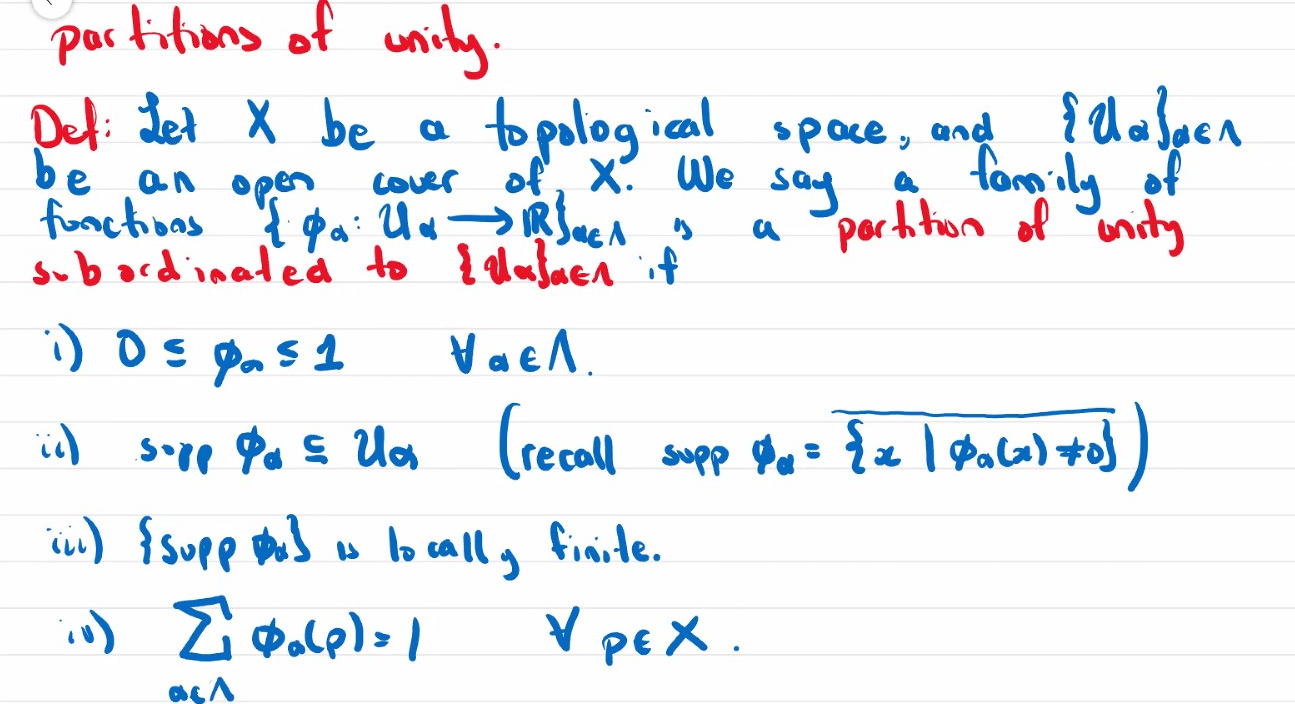 partitions of unity.
Def: Let X be a topological space, and {U_α}_{α∈Λ}
be an open cover of X. We say a family of
functions {φ_α: U_α ⟶ ℝ}_{α∈Λ} is a partition of unity
subordinated to {U_α}_{α∈Λ} if
i) 0 ≤ φ_α ≤ 1 ∀ α∈Λ.
ii) supp φ_α ⊆ U_α (recall supp φ_α = \overline{{x | φ_α(x) ≠ 0}})
iii) {supp φ_α} is locally finite.
iv) ∑_{α∈Λ} φ_α(p) = 1 ∀ p∈X.